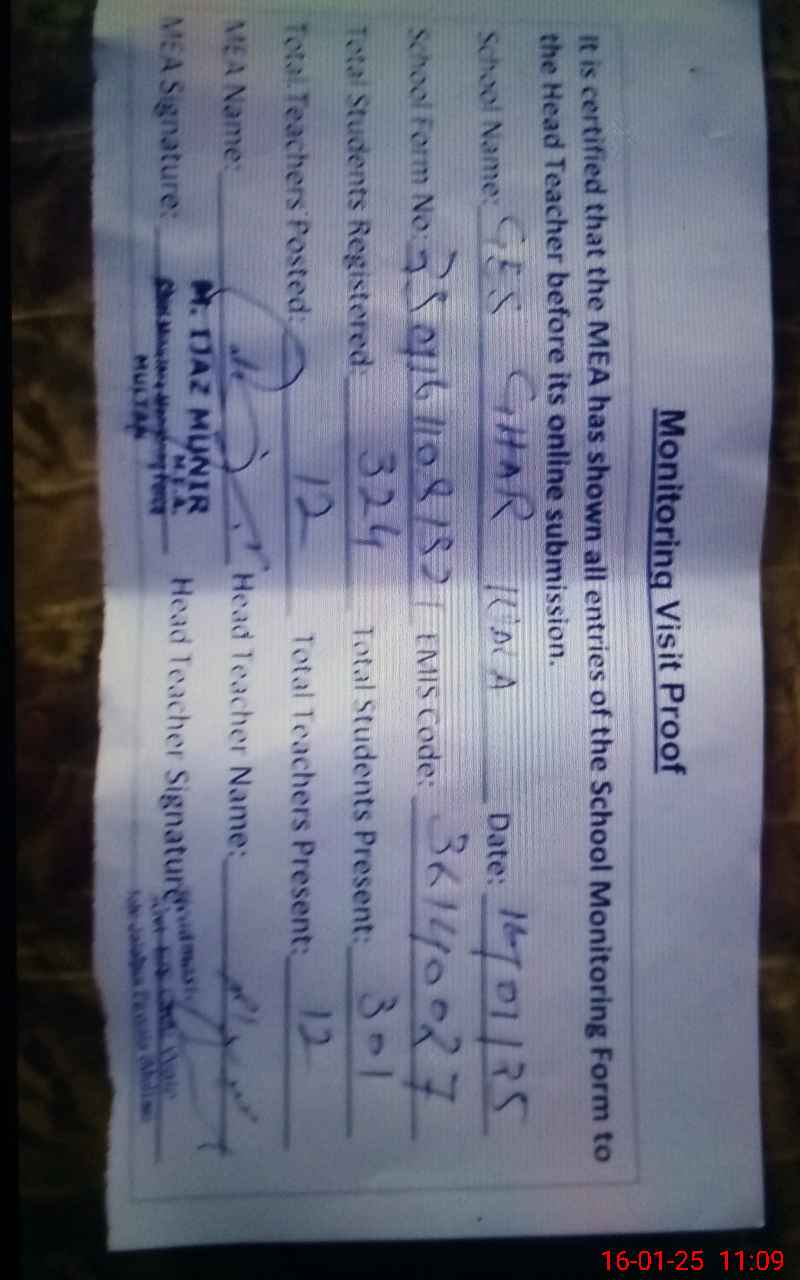 Monitoring Visit Proof
It is certified that the MEA has shown all entries of the School Monitoring Form to
the Head Teacher before its online submission.
School Name: GES GHAR Date: 16/01/25
School Form No: EMIS Code: 36140027
Total Students Registered: 324 Total Students Present: 301
Total Teachers Posted: 12 Total Teachers Present: 12
MEA Name: Head Teacher Name:
MEA Signature: Head Teacher Signature:
M. IJAZ MUNIR
M.E.A.
MULTAN
16-01-25 11:09